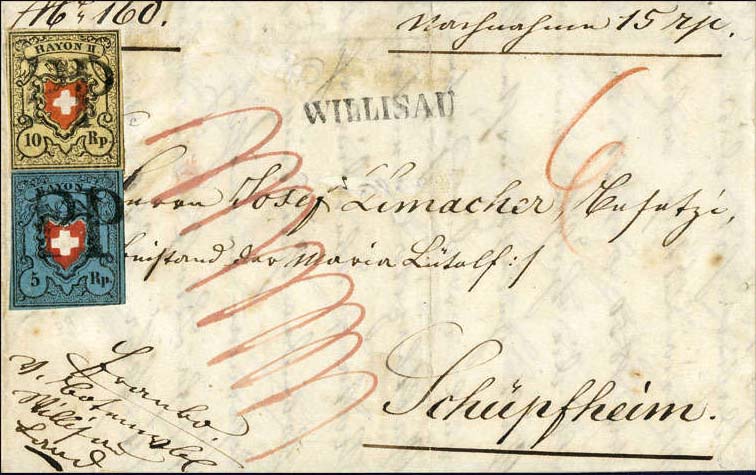 No 160.
Nachnahme 15 rp.
RAYON II
PP
10 Rp.
WILLISAU
6
RAYON I
PP
5 Rp.
Herrn Josef Limacher, Besetzi,
Beistand der Maria Lütolf :/
Schüpfheim.
Franko
v.
Willisau
Land